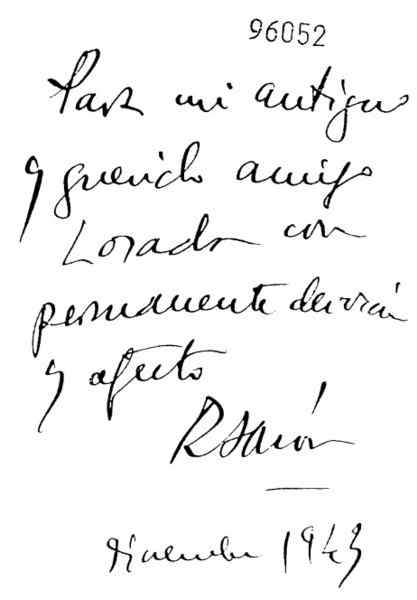 96052
Para mi antiguo
y querido amigo
Losada con
permanente devoción
y afecto
diciembre 1943